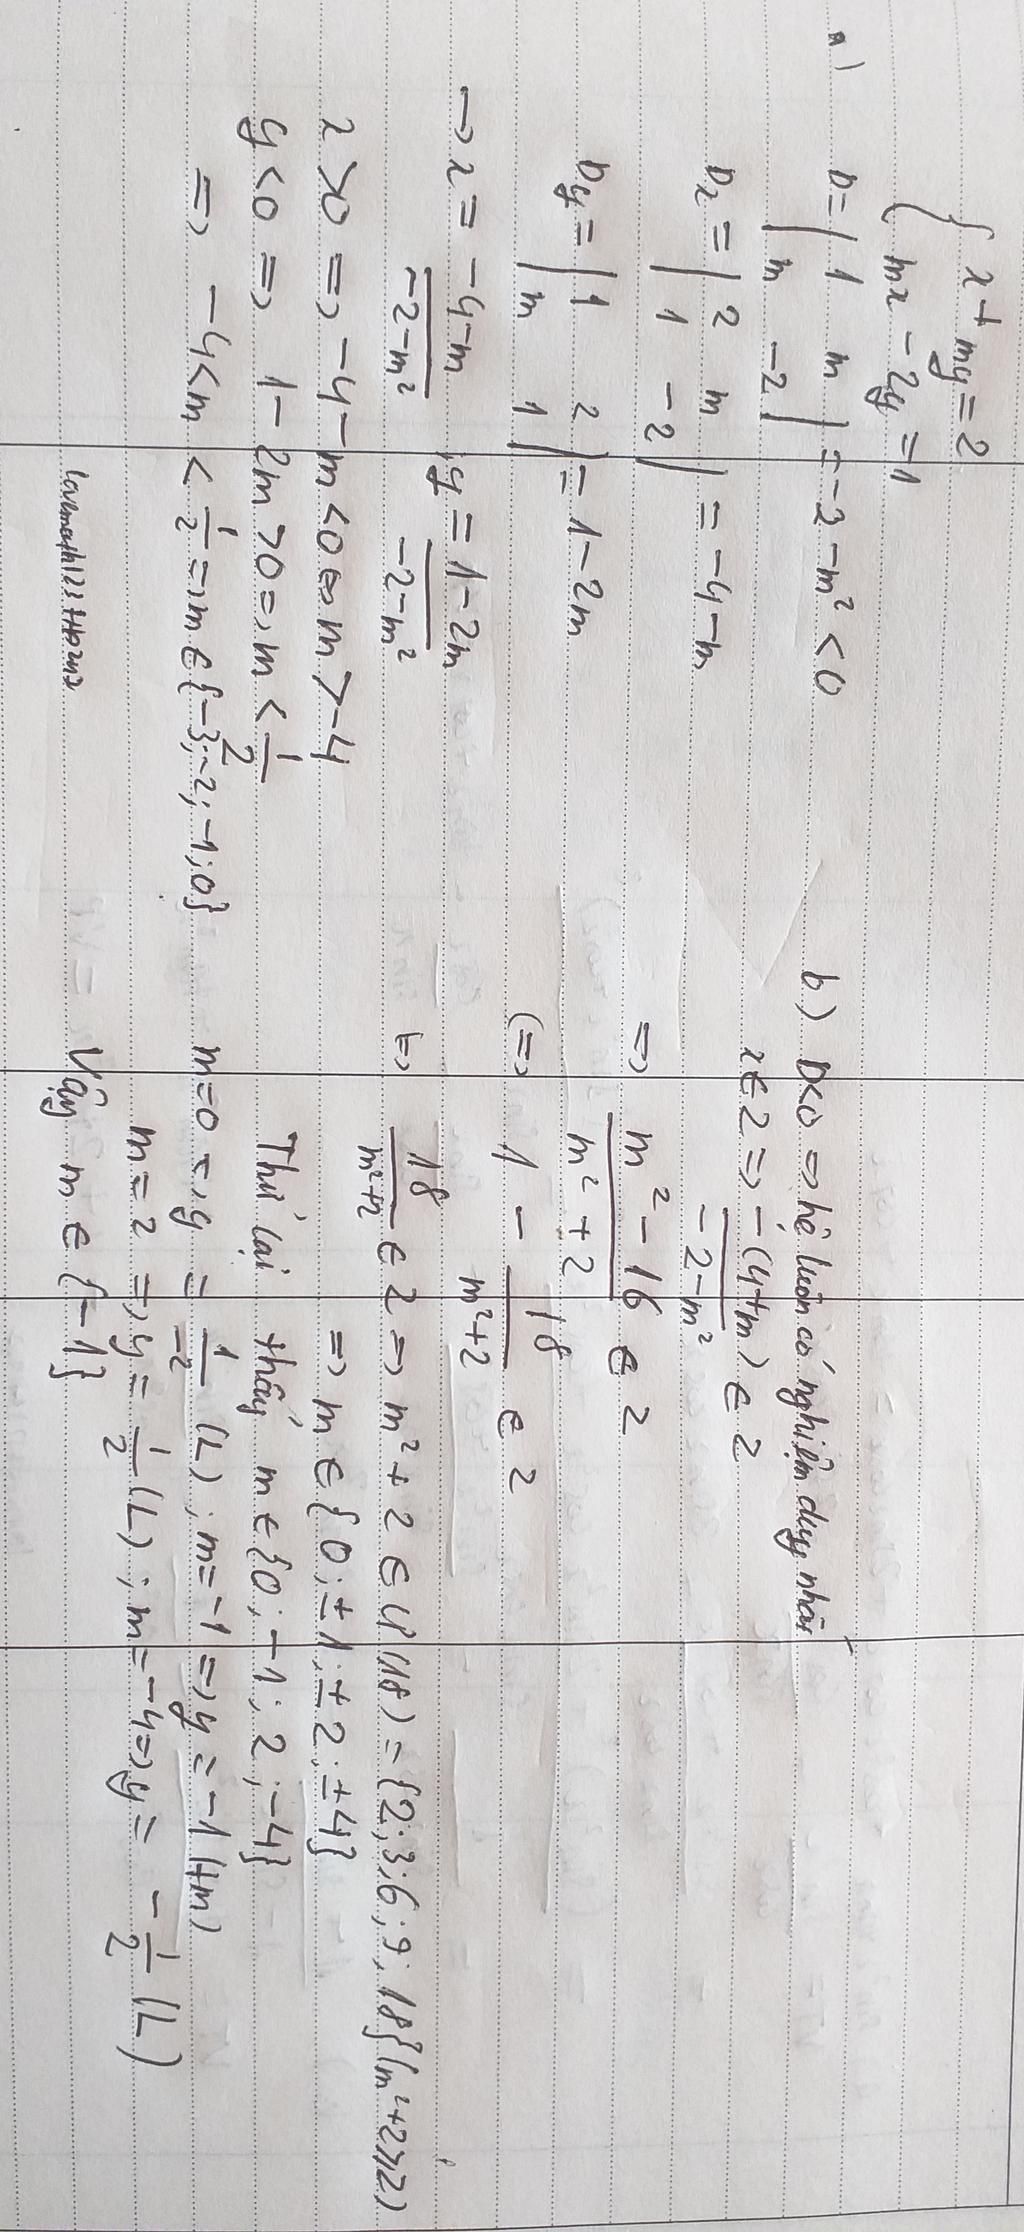 { x + my = 2
mx - 2y = 1
a)
D = | 1 m
m -2 | = -2 - m² < 0
Dx = | 2 m
1 -2 | = -4 - m
Dy = | 1 2
m 1 | = 1 - 2m
→ x = -4-m / -2-m² ; y = 1-2m / -2-m²
x > 0 => -4 - m < 0 <=> m > -4
y < 0 => 1 - 2m > 0 => m < 1/2
=> -4 < m < 1/2 => m ∈ {-3; -2; -1; 0}
b) D<0 => hệ luôn có nghiệm duy nhất
x ∈ Z => -(4+m) / -2-m² ∈ Z
=> m² - 16 / m² + 2 ∈ Z
(=> 1 - 18 / m²+2 ∈ Z
<=> 18 / m²+2 ∈ Z => m² + 2 ∈ Ư(18) = {2; 3; 6; 9; 18} (m²+2≥2)
=> m ∈ {0; ±1; ±2; ±4}
Thử lại thấy m ∈ {0; -1; 2; -4}
m = 0 => y = 1/-2 (L); m = -1 => y = -1 (tm)
m = 2 => y = 1/2 (L); m = -4 => y = -1/2 (L)
Vậy m ∈ {-1}